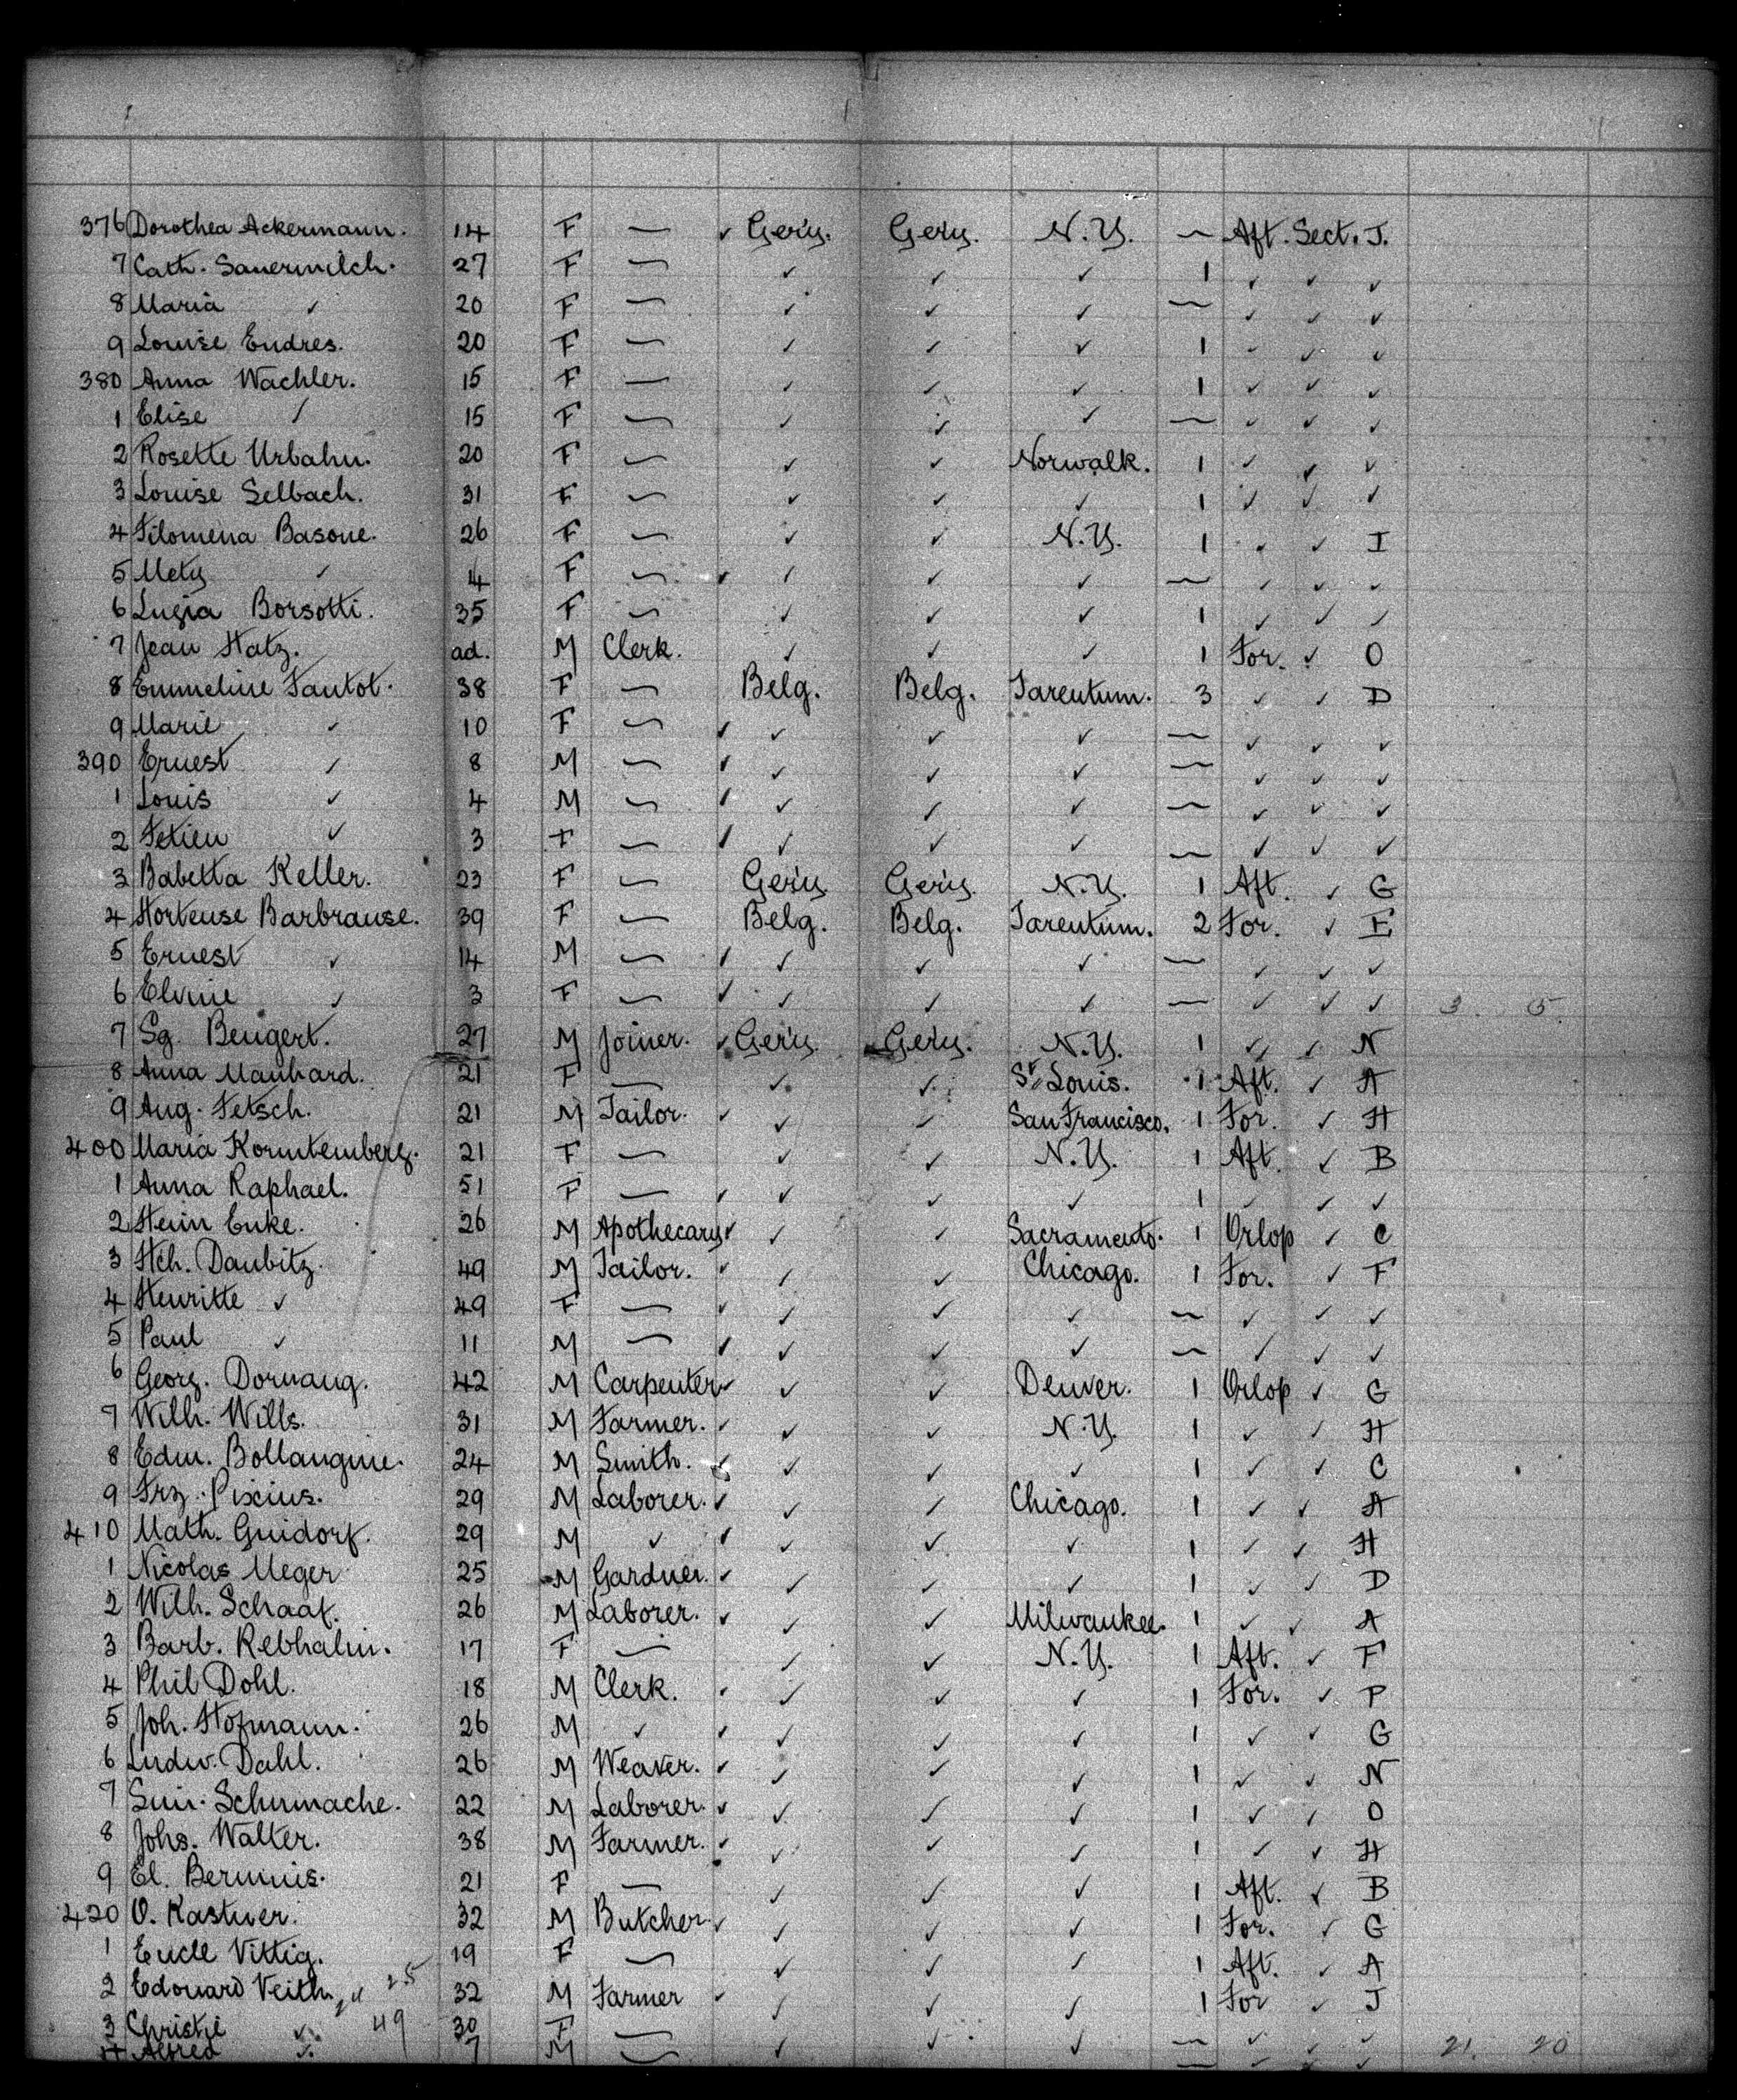 376 Dorothea Ackermann. 14 F — ✓ Gery. Gery. N.Y. — Aft. Sect. J.
7 Cath. Sauermilch. 27 F — ✓ ✓ ✓ 1 ✓ ✓ ✓
8 Maria ✓ 20 F — ✓ ✓ ✓ — ✓ ✓ ✓
9 Louise Endres. 20 F — ✓ ✓ ✓ 1 ✓ ✓ ✓
380 Anna Wachler. 15 F — ✓ ✓ ✓ 1 ✓ ✓ ✓
1 Elise ✓ 15 F — ✓ ✓ ✓ — ✓ ✓ ✓
2 Rosette Urbahn. 20 F — ✓ ✓ Norwalk. 1 ✓ ✓ ✓
3 Louise Selbach. 31 F — ✓ ✓ ✓ 1 ✓ ✓ ✓
4 Filomena Basone. 26 F — ✓ ✓ N.Y. 1 ✓ ✓ I
5 Mety ✓ 4 F — ✓ ✓ ✓ ✓ — ✓ ✓ ✓
6 Lugia Borsotti. 35 F — ✓ ✓ ✓ 1 ✓ ✓ ✓
7 Jean Hatz. ad. M Clerk. ✓ ✓ ✓ 1 For. ✓ O
8 Emmeline Fautot. 38 F — Belg. Belg. Tarentum. 3 ✓ ✓ D
9 Marie ✓ 10 F — ✓ ✓ ✓ ✓ — ✓ ✓ ✓
390 Ernest ✓ 8 M — ✓ ✓ ✓ ✓ — ✓ ✓ ✓
1 Louis ✓ 4 M — ✓ ✓ ✓ ✓ — ✓ ✓ ✓
2 Fetien ✓ 3 F — ✓ ✓ ✓ ✓ — ✓ ✓ ✓
3 Babetta Keller. 23 F — Gery. Gery. N.Y. 1 Aft. ✓ G
4 Hortense Barbrause. 39 F — Belg. Belg. Tarentum. 2 For. ✓ E
5 Ernest ✓ 14 M — ✓ ✓ ✓ ✓ — ✓ ✓ ✓
6 Elvine ✓ 3 F — ✓ ✓ ✓ ✓ — ✓ ✓ ✓ 3. 5.
7 Sg. Bengert. 27 M Joiner. ✓ Gery. Gery. N.Y. 1 ✓ ✓ N
8 Anna Manhard. 21 F — ✓ ✓ St. Louis. 1 Aft. ✓ A
9 Aug. Fetsch. 21 M Tailor. ✓ ✓ ✓ San Francisco. 1 For. ✓ H
400 Maria Korntemberg. 21 F — ✓ ✓ N.Y. 1 Aft. ✓ B
1 Anna Raphael. 51 F — ✓ ✓ ✓ ✓ 1 ✓ ✓ ✓
2 Hein Enke. 26 M Apothecary ✓ ✓ ✓ Sacramento. 1 Orlop ✓ C
3 Hch. Daubitz. 49 M Tailor. ✓ ✓ ✓ Chicago. 1 For. ✓ F
4 Henritte ✓ 49 F — ✓ ✓ ✓ ✓ — ✓ ✓ ✓
5 Paul ✓ 11 M — ✓ ✓ ✓ ✓ — ✓ ✓ ✓
6 Georg. Dornaug. 42 M Carpenter ✓ ✓ ✓ Denver. 1 Orlop ✓ G
7 Wilh. Wills. 31 M Farmer. ✓ ✓ ✓ N.Y. 1 ✓ ✓ H
8 Edm. Bollangme. 24 M Smith. ✓ ✓ ✓ ✓ 1 ✓ ✓ C
9 Frz. Piscius. 29 M Laborer. ✓ ✓ ✓ Chicago. 1 ✓ ✓ A
410 Math. Guidorf. 29 M ✓ ✓ ✓ ✓ ✓ 1 ✓ ✓ H
1 Nicolas Meger 25 M Gardner. ✓ ✓ ✓ ✓ 1 ✓ ✓ D
2 Wilh. Schaaf. 26 M Laborer. ✓ ✓ ✓ Milwaukee. 1 ✓ ✓ A
3 Barb. Rebhalm. 17 F — ✓ ✓ N.Y. 1 Aft. ✓ F
4 Phil Dohl. 18 M Clerk. ✓ ✓ ✓ ✓ 1 For. ✓ P
5 Joh. Hofmann. 26 M ✓ ✓ ✓ ✓ ✓ 1 ✓ ✓ G
6 Ludw. Dahl. 26 M Weaver. ✓ ✓ ✓ ✓ 1 ✓ ✓ N
7 Schumache. 22 M Laborer. ✓ ✓ ✓ ✓ 1 ✓ ✓ O
8 Johs. Walter. 38 M Farmer. ✓ ✓ ✓ ✓ 1 ✓ ✓ H
9 El. Bermnis. 21 F — ✓ ✓ ✓ 1 Aft. ✓ B
420 O. Kastner. 32 M Butcher ✓ ✓ ✓ ✓ 1 For. ✓ G
1 Eucle Vittig. 19 F — ✓ ✓ ✓ 1 Aft. ✓ A
2 Edouard Veith 24 25 32 M Farmer ✓ ✓ ✓ ✓ 1 For ✓ J
3 Christie ✓ 49 30 F — ✓ ✓ ✓ — ✓ ✓ ✓ 21. 20
4 Alfred ✓ 7 M — — ✓ ✓ ✓